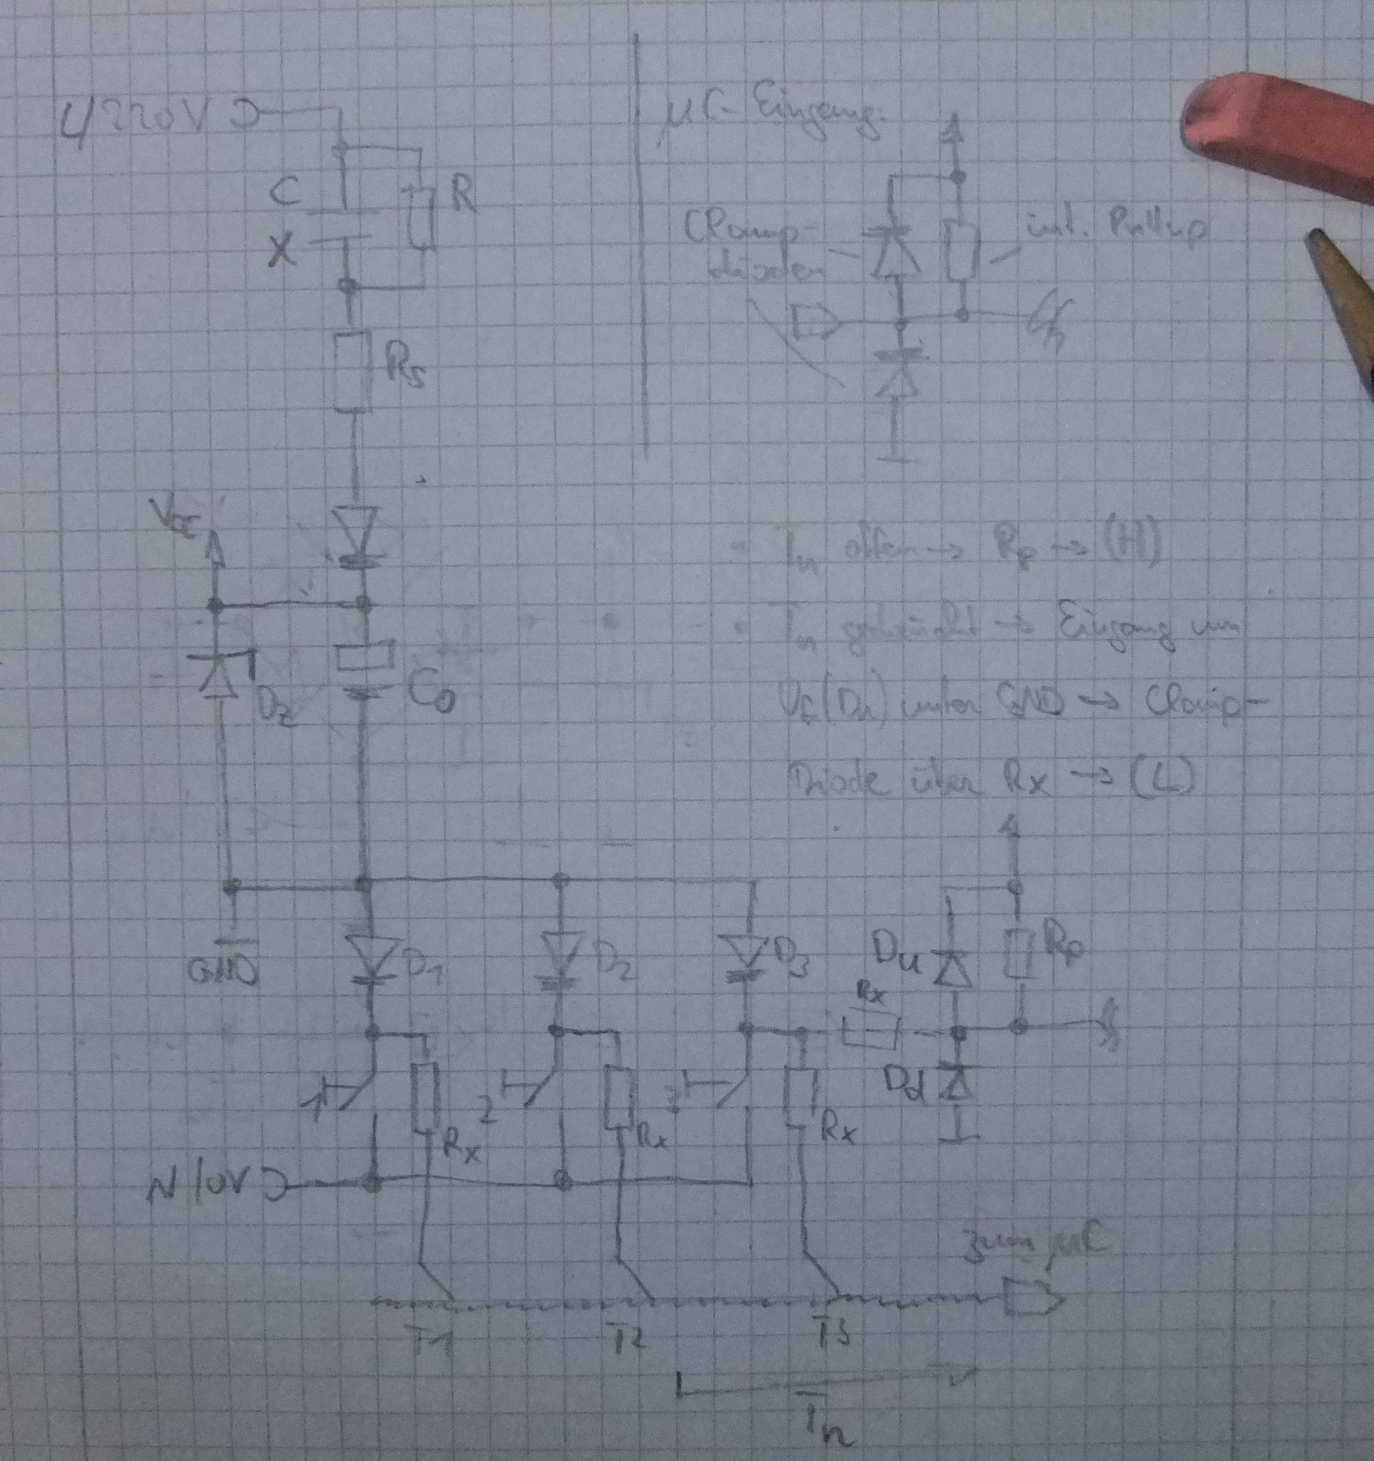 L/220V
C
X
R
Rs
Vcc
Dz
C0
GND
D1
D2
D3
1
2
3
Rx
Rx
Rx
N/0V
T1
T2
T3
Tn
zum µC
µC-Eingang:
Clamp-
dioden
int. Pullup
Tn offen → Rp → (H)
Tn gedrückt → Eingang um
Vf(Dn) unter GND → Clamp-
Diode über Rx → (L)
Du
Rp
Rx
Dd